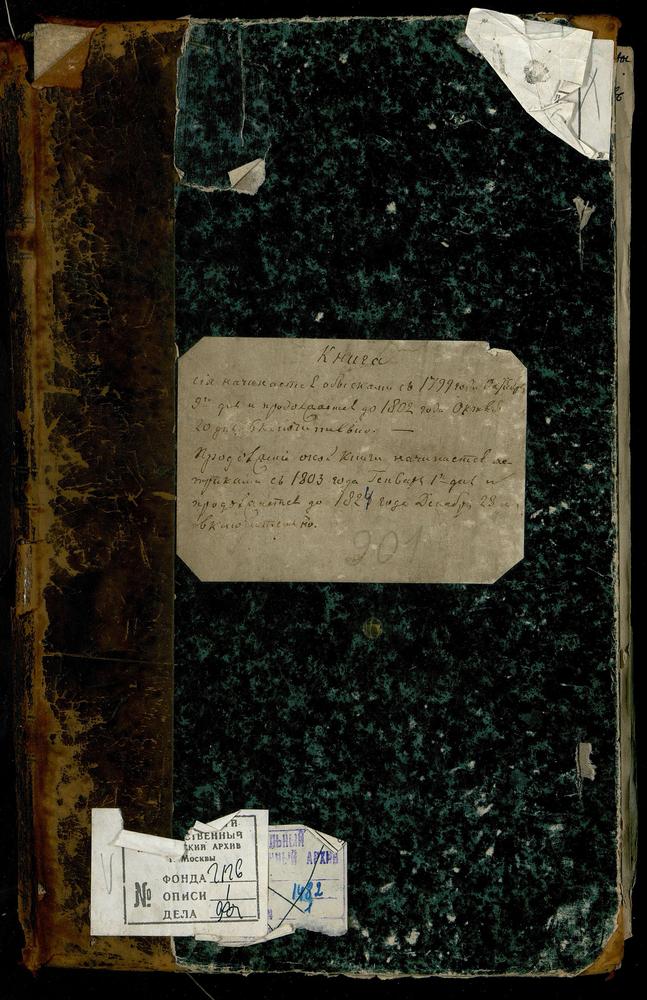 Книга
сія начинается обысками съ 1799 года Октября
9го дня и продолжается до 1802 года Октяб
20 дня включительно. —
Продолженіе оной книги начинается ме-
триками съ 1803 года Генваря 1го дня и
продолжается до 1824 года Декабря 28
включительно.
901
СТВЕННЫЙ
СКИЙ АРХИВ
г. Москвы
ФОНДА 2126
№ ОПИСИ 1
ДЕЛА
АЛЬНЫЙ
ННЫЙ АРХИВ
1482